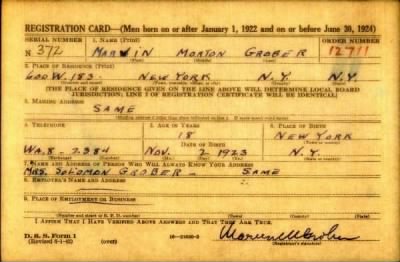 REGISTRATION CARD—(Men born on or after January 1, 1922 and on or before June 30, 1924)
SERIAL NUMBER 1. NAME (Print) ORDER NUMBER
N 372 MARVIN MORTON GROBER 12711
(First) (Middle) (Last)
2. PLACE OF RESIDENCE (Print)
600 W. 183. NEW YORK N.Y. N.Y.
(Number and street) (Town, township, village, or city) (County) (State)
[THE PLACE OF RESIDENCE GIVEN ON THE LINE ABOVE WILL DETERMINE LOCAL BOARD
JURISDICTION; LINE 2 OF REGISTRATION CERTIFICATE WILL BE IDENTICAL]
3. MAILING ADDRESS
SAME
4. TELEPHONE 5. AGE IN YEARS 6. PLACE OF BIRTH
18 NEW YORK
DATE OF BIRTH
WA.8-2384 NOV. 2 1923 N.Y.
(Exchange) (Number) (Mo.) (Day) (Yr.) (State or country)
7. NAME AND ADDRESS OF PERSON WHO WILL ALWAYS KNOW YOUR ADDRESS
MRS. SOLOMON GROBER - SAME
8. EMPLOYER'S NAME AND ADDRESS
9. PLACE OF EMPLOYMENT OR BUSINESS
(Number and street or R. F. D. number) (Town) (County) (State)
I AFFIRM THAT I HAVE VERIFIED ABOVE ANSWERS AND THAT THEY ARE TRUE.
D. S. S. Form 1
(Revised 6-1-42) (over) Marvin M Grober
(Registrant's signature)